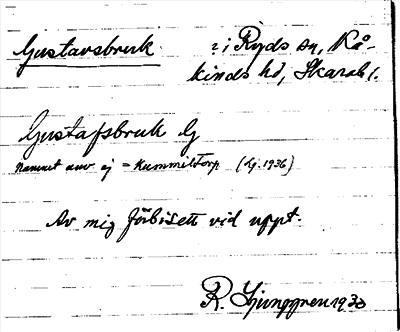 Gustavsbruk ? i Ryds sn, Kå-
kinds hd, Skarab l.
Gustafsbruk Lg
namnet anv ej = Kummeltorp (Lg. 1936)
Av mig förbisett vid uppt.
R. Ljunggren 1930